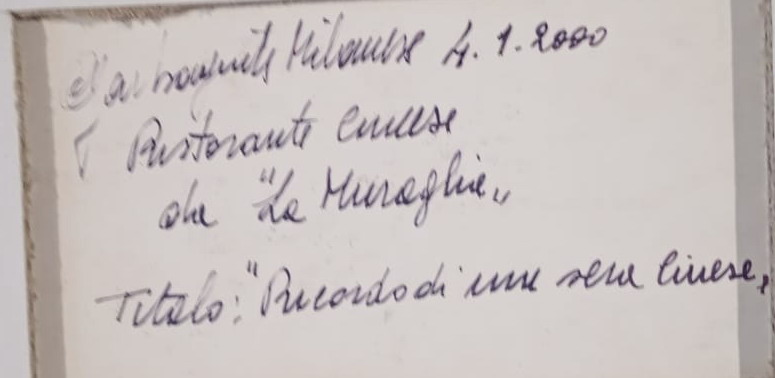 Garbagnate Milanese 4.1.2000
Ristorante cinese
da "La Muraglia"
Titolo: "Ricordo di una sera cinese"